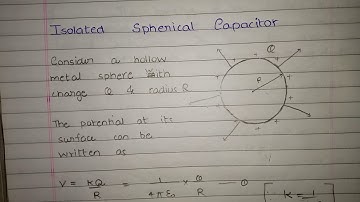 Isolated Spherical Capacitor
Consider a hollow
metal sphere with
charge Q & radius R
The potential at its
surface can be
written as
V = KQ/R = 1/4πε₀ × Q/R — ①
Q
R
[ K = 1